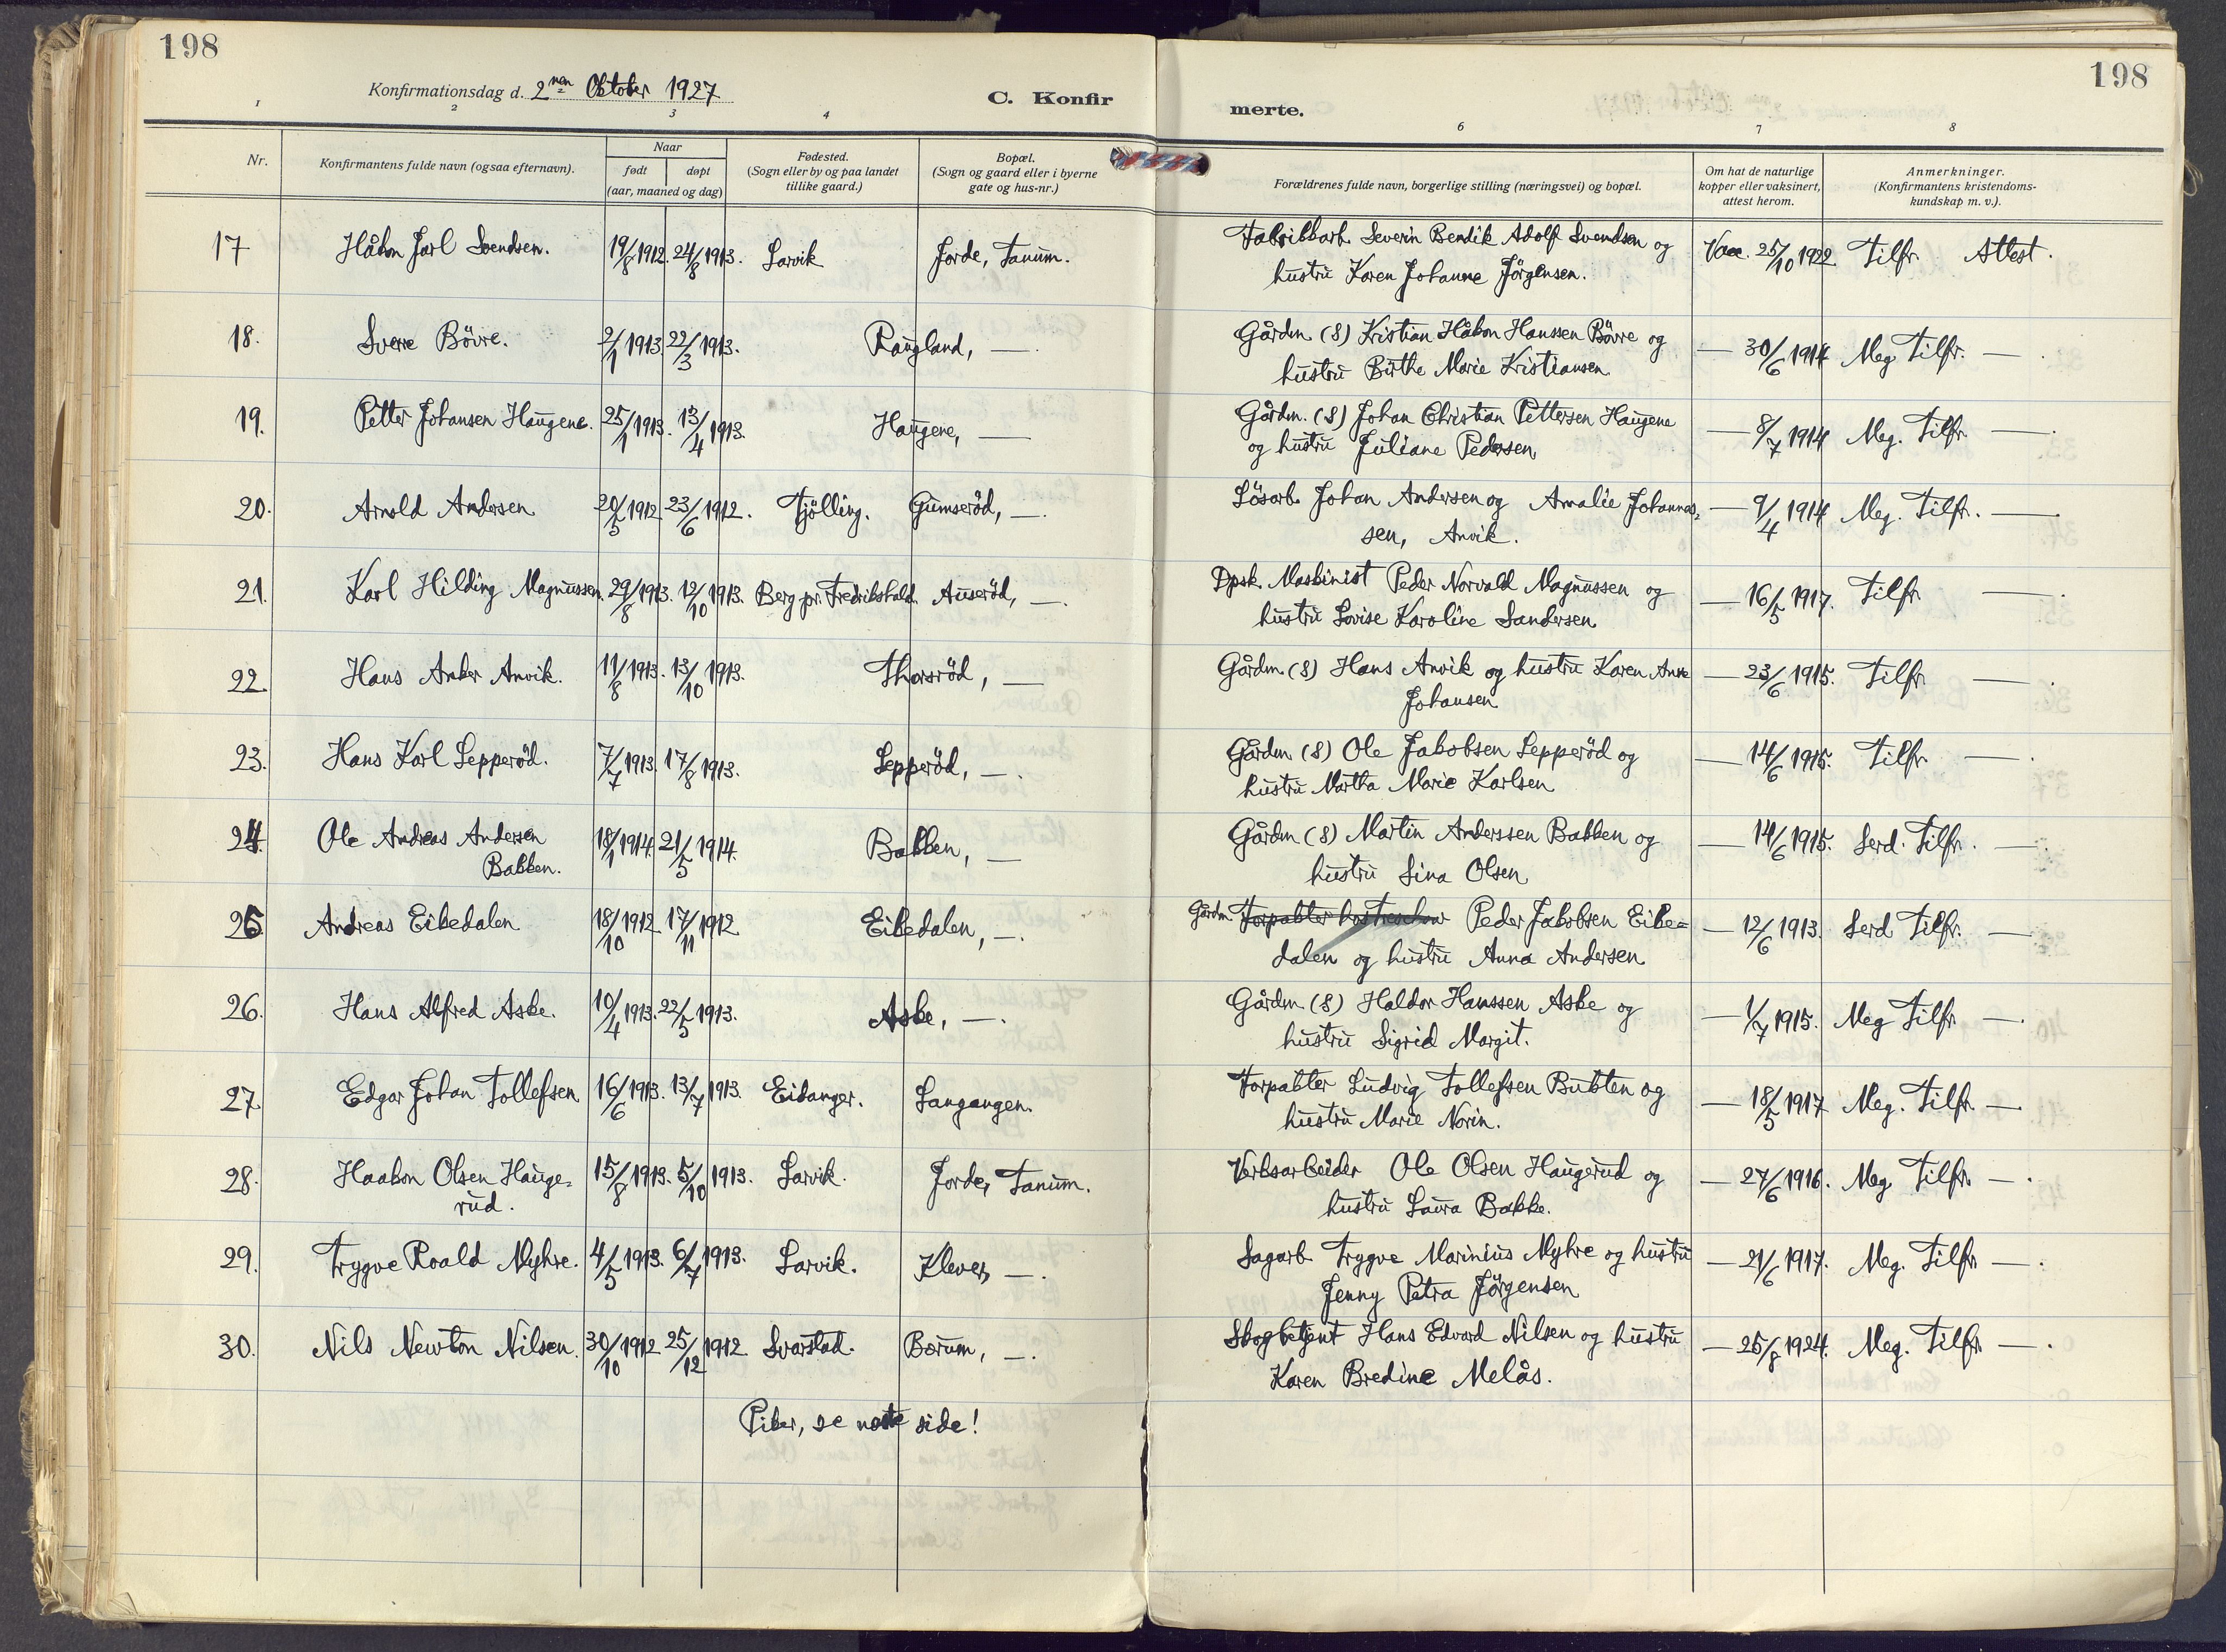 198
Konfirmationsdag d. 2nen Oktober 1927
C. Konfir
1 2 3 4
Nr.
Konfirmantens fulde navn (ogsaa efternavn).
Naar
født døpt
(aar, maaned og dag)
Fødested.
(Sogn eller by og paa landet
tillike gaard.)
Bopæl.
(Sogn og gaard eller i byerne
gate og hus-nr.)
17 Håkon Jarl Svendsen. 19/8 1912. 24/8 1913. Larvik Jorde, Tanum.
18. Sverre Bövre. 2/1 1913. 22/3 1913. Raugland, —.
19. Petter Johansen Haugene. 25/1 1913. 13/4 1913. Haugene, —
20. Arnold Andersen 20/5 1912. 23/6 1912. Tjölling. Gumseröd, —.
21. Karl Hilding Magnussen. 29/8 1913. 12/10 1913. Berg pr. Fredrikshald. Auseröd, —.
22. Hans Anker Anvik. 11/8 1913. 13/10 1913. Thorsröd, —
23. Hans Karl Lepperöd. 7/7 1913. 17/8 1913. Lepperöd, —.
24. Ole Andreas Andersen 18/1 1914. 21/5 1914. Bakken, —
Bakken.
25 Andreas Eikedalen 18/10 1912 17/11 1912 Eikedalen, —.
26. Hans Alfred Aske. 10/4 1913. 22/5 1913. Aske, —.
27. Edgar Johan Tollefsen 16/6 1913. 13/7 1913. Eidanger. Langangen.
28. Haakon Olsen Hauge= 15/8 1913. 5/10 1913. Larvik. Jorde, Tanum.
rud.
29. Trygve Roald Myhre. 4/5 1913. 6/7 1913. Larvik. Klever, —.
30. Nils Newton Nilsen. 30/10 1912 25/12 1912 Svarstad. Bærum, —.
Piker, se neste side!
198
merte.
6 7 8
Forældrenes fulde navn, borgerlige stilling (næringsvei) og bopæl.
Om hat de naturlige
kopper eller vaksinert,
attest herom.
Anmerkninger.
(Konfirmantens kristendoms-
kundskap m. v.).
Fabrikkarb. Severin Bendik Adolf Svendsen og Vac. 25/10 1922 Tilfr. Attest.
hustru Karen Johanne Jörgensen.
Gårdm. (S) Kristian Håkon Hanssen Bövre og — 30/6 1914 Meg Tilfr. —.
hustru Birthe Marie Kristiansen
Gårdm. (S) Johan Christian Pettersen Haugene — 8/7 1914 Meg. Tilfr. —.
og hustru Juliane Pedersen,
Lösarb. Johan Andersen og Amalie Johannes= — 9/4 1914 Meg. Tilfr. —
sen, Anvik.
Dpsk. Maskinist Peder Norvald Magnussen og — 16/5 1917. Tilfr —.
hustru Lovise Karoline Sandersen
Gårdm. (S) Hans Anvik og hustru Karen Anne — 23/6 1915. Tilfr —.
Johansen
Gårdm. (S) Ole Jakobsen Lepperöd og — 14/6 1915. Tilfr. —.
hustru Martha Marie Karlsen
Gårdm (S) Martin Anderssen Bakken og — 14/6 1915. Serd. Tilfr. —
hustru Sina Olsen
Gårdm. Forpakter Peder Jakobsen Eike= — 12/6 1913. Serd Tilfr. —
dalen og hustru Anna Andersen
Gårdm. (S) Haldor Hanssen Aske og — 1/7 1915. Meg Tilfr —.
hustru Sigrid Margit.
Forpakter Ludvig Tollefsen Bukten og — 18/5 1917 Meg. Tilfr. —.
hustru Marie Norin.
Verksarbeider Ole Olsen Haugerud og — 27/6 1916. Meg Tilfr. —.
hustru Laura Bakke.
Sagarb. Trygve Marinius Myhre og hustru — 21/6 1917. Meg. Tilfr —.
Jenny Petra Jörgensen
Skogbetjent Hans Edvard Nilsen og hustru — 25/8 1924. Meg. Tilfr. —.
Karen Bredine Melås.